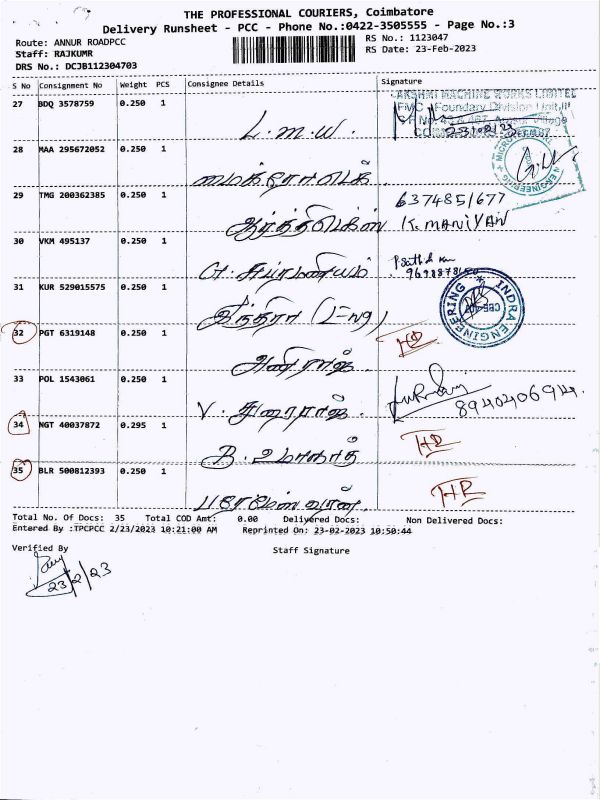 THE PROFESSIONAL COURIERS, Coimbatore
Delivery Runsheet - PCC - Phone No.:0422-3505555 - Page No.:3
Route: ANNUR ROADPCC
RS No.: 1123047
Staff: RAJKUMR
RS Date: 23-Feb-2023
DRS No.: DCJB112304703
S No Consignment No Weight PCS Consignee Details Signature
27 BDQ 3578759 0.250 1
L.M.W.
LAKSHMI MACHINE WORKS LIMITED
Foundary Division Unit
28 MAA 295672052 0.250 1
மைக்ரோடெக்
29 TMG 200362385 0.250 1
6374851677
K. MANIYAN
30 VKM 495137 0.250 1
9698878650
31 KUR 529015575 0.250 1
INDRA ENGINEERING
32 PGT 6319148 0.250 1
33 POL 1543061 0.250 1
V. துரைராஜ்
894040694.
34 NGT 40037872 0.295 1
B. உமாநாத்
35 BLR 500812393 0.250 1
பரமேஸ்வரன்
Total No. Of Docs: 35 Total COD Amt: 0.00 Delivered Docs: Non Delivered Docs:
Entered By :TPCPCC 2/23/2023 10:21:00 AM Reprinted On: 23-02-2023 10:50:44
Verified By
Staff Signature
23/2/23